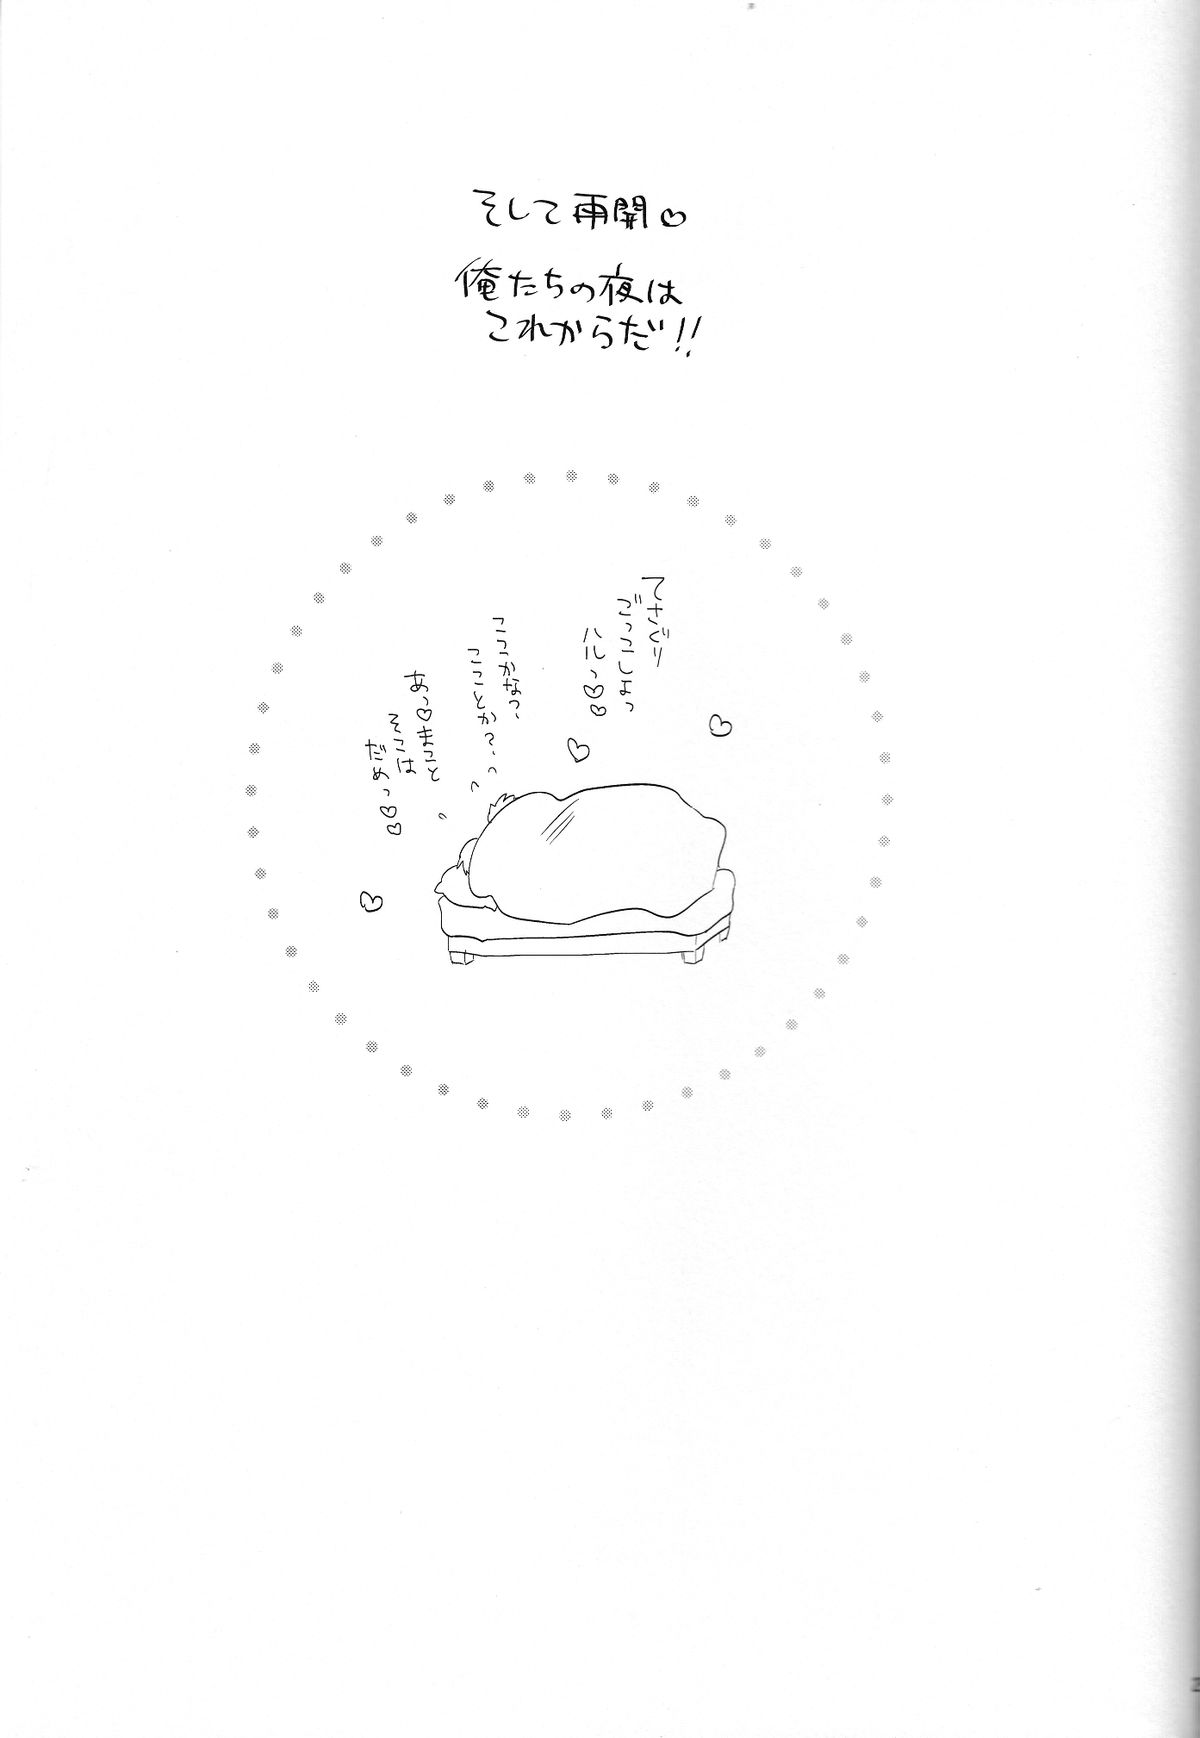 そして再開♡
俺たちの夜は
これからだ!!
てさぐり
ごっこしよっ
ハルっ♡♡
ここかなっ、
こことか?、、
あっ♡まこと
そこは
だめっ♡♡